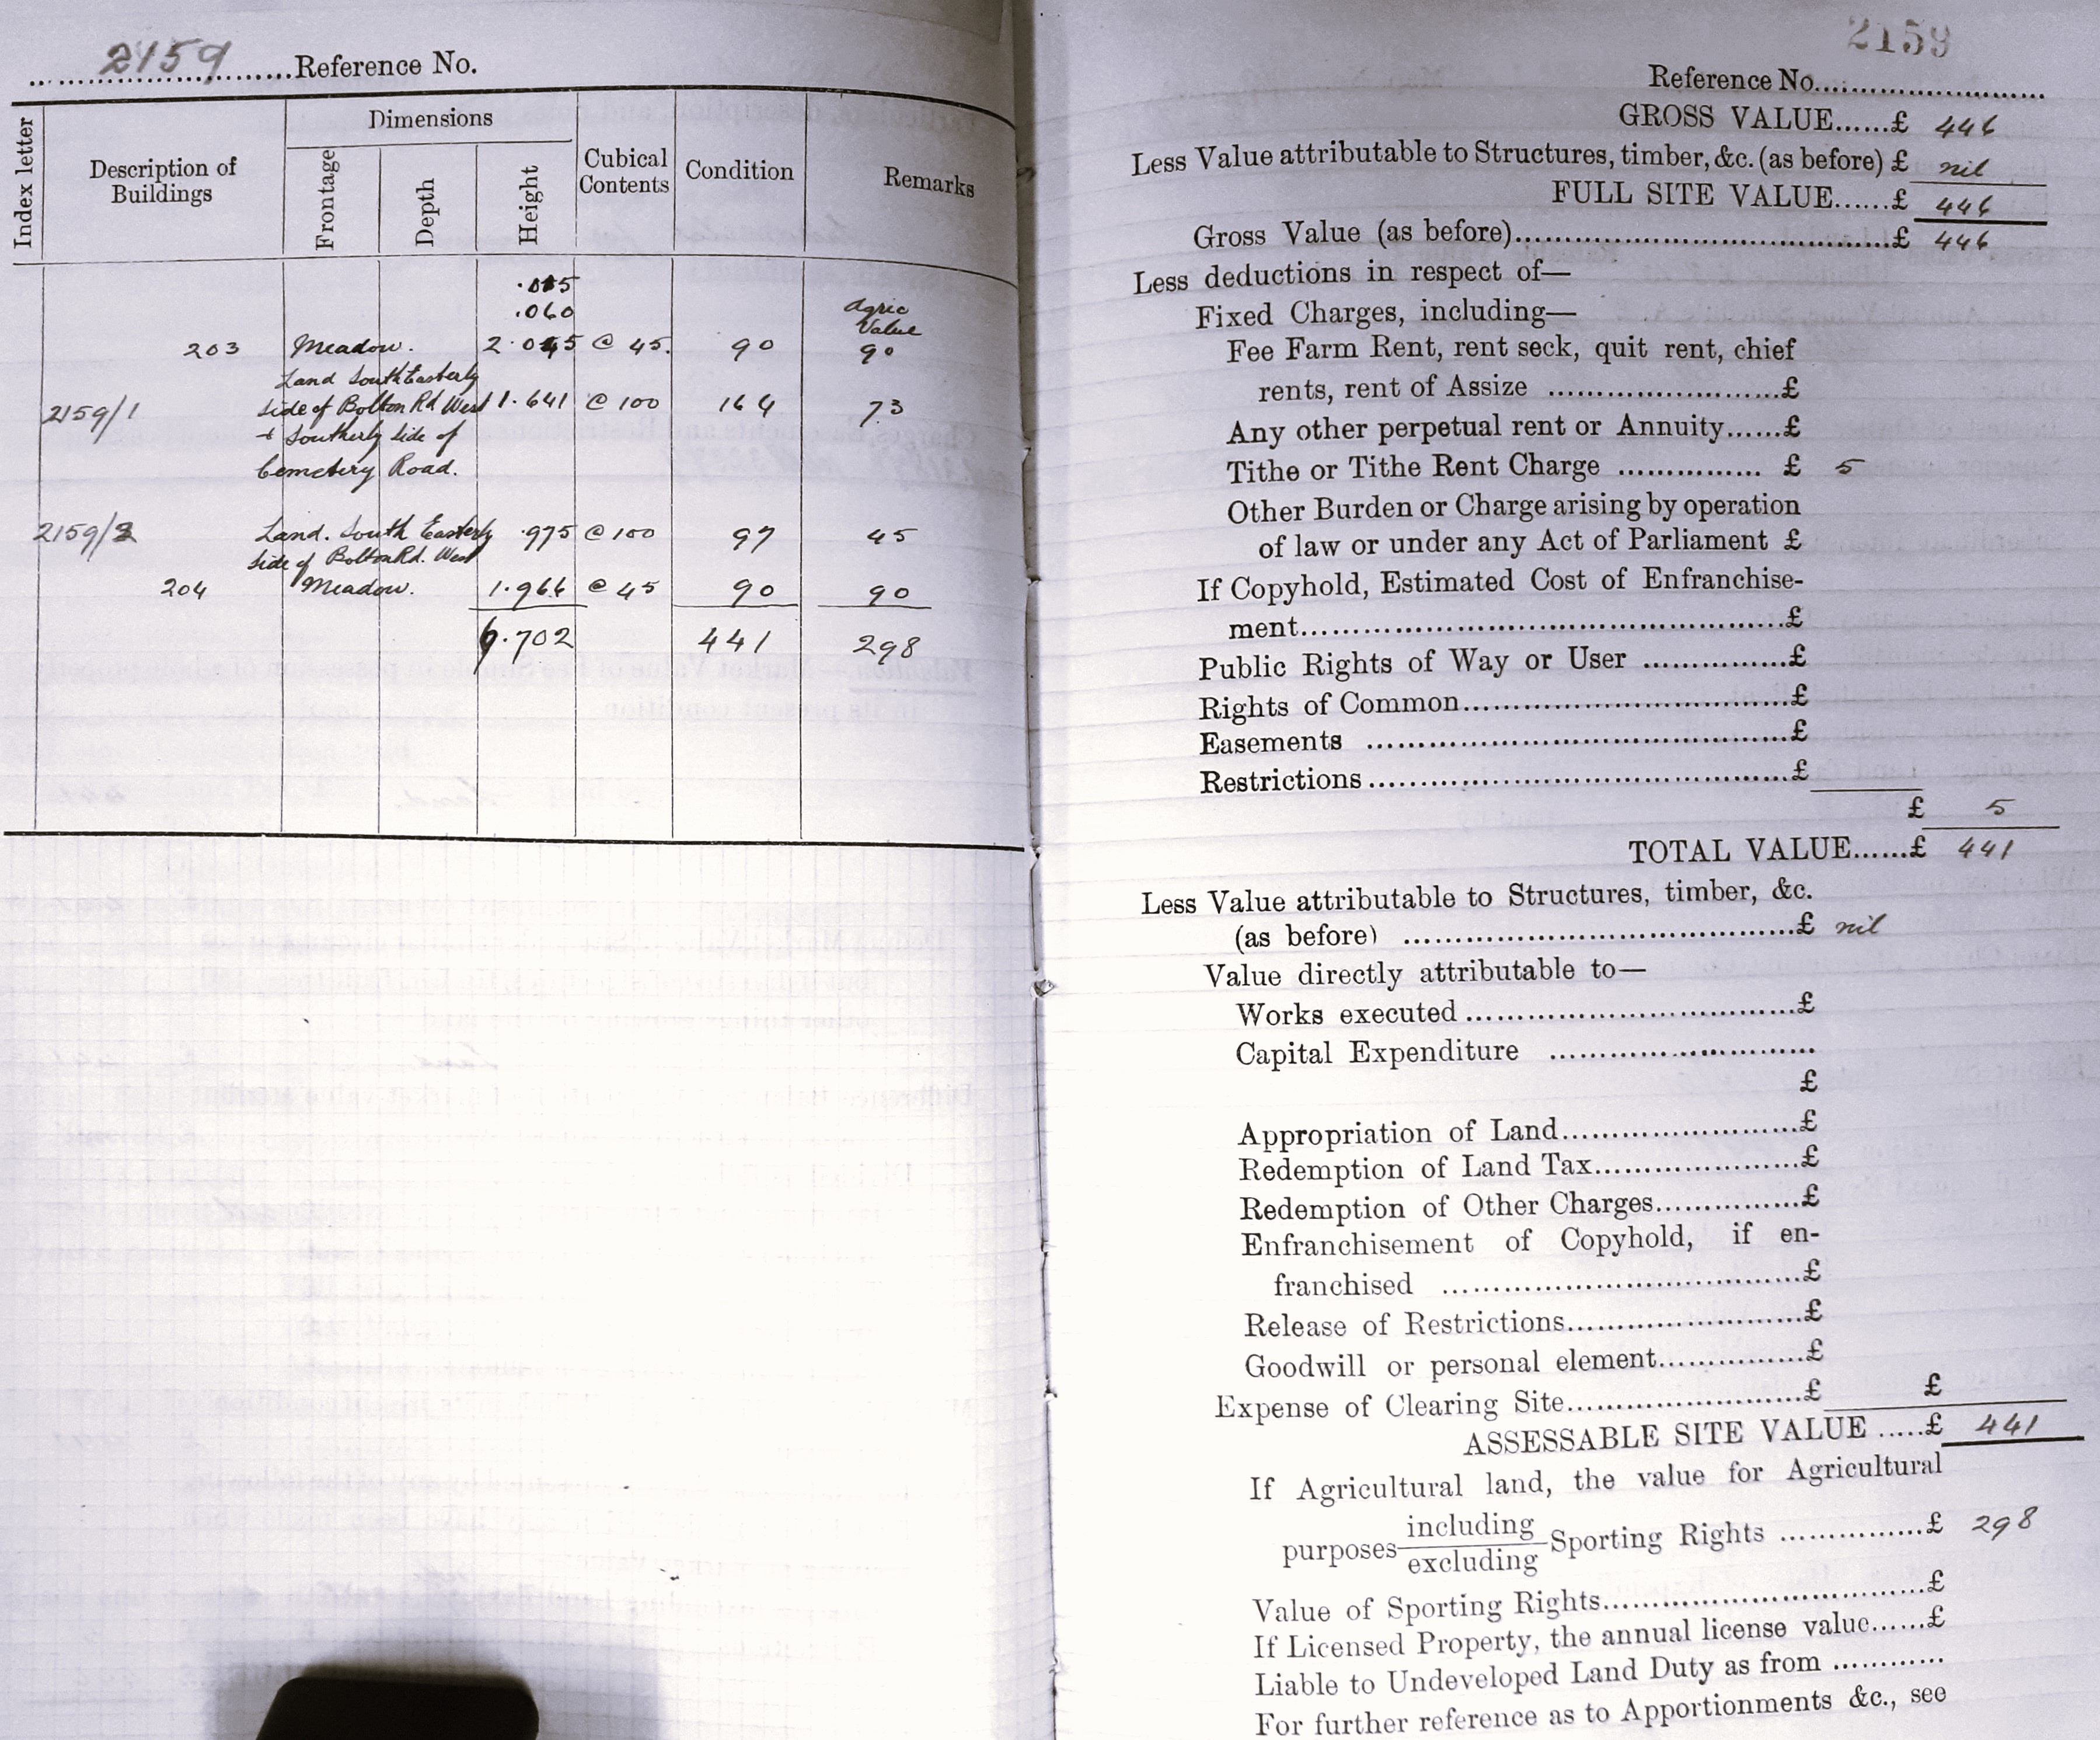 2159 Reference No.
Index letter
Description of Buildings
Dimensions
Frontage
Depth
Height
Cubical Contents
Condition
Remarks
.060
Agric
Value
203 Meadow. 2.045 @ 45. 90 90
Land South Easterly
2159/1 side of Bolton Rd West 1.641 @ 100 164 73
+ Southerly side of
Cemetery Road.
2159/2 Land. South Easterly .975 @ 100 97 45
side of Bolton Rd. West
204 Meadow. 1.966 @ 45 90 90
6.702 441 298
2159
Reference No.
GROSS VALUE......£ 446
Less Value attributable to Structures, timber, &c. (as before) £ nil
FULL SITE VALUE......£ 446
Gross Value (as before)......£ 446
Less deductions in respect of—
Fixed Charges, including—
Fee Farm Rent, rent seck, quit rent, chief
rents, rent of Assize ......£
Any other perpetual rent or Annuity......£
Tithe or Tithe Rent Charge ...... £ 5
Other Burden or Charge arising by operation
of law or under any Act of Parliament £
If Copyhold, Estimated Cost of Enfranchise-
ment......£
Public Rights of Way or User ......£
Rights of Common......£
Easements ......£
Restrictions......£
£ 5
TOTAL VALUE......£ 441
Less Value attributable to Structures, timber, &c.
(as before) ......£ nil
Value directly attributable to—
Works executed ......£
Capital Expenditure ......
£
Appropriation of Land......£
Redemption of Land Tax......£
Redemption of Other Charges......£
Enfranchisement of Copyhold, if en-
franchised ......£
Release of Restrictions......£
Goodwill or personal element......£
Expense of Clearing Site......£ £
ASSESSABLE SITE VALUE .....£ 441
If Agricultural land, the value for Agricultural
purposes including/excluding Sporting Rights ......£ 298
Value of Sporting Rights......£
If Licensed Property, the annual license value......£
Liable to Undeveloped Land Duty as from ......
For further reference as to Apportionments &c., see